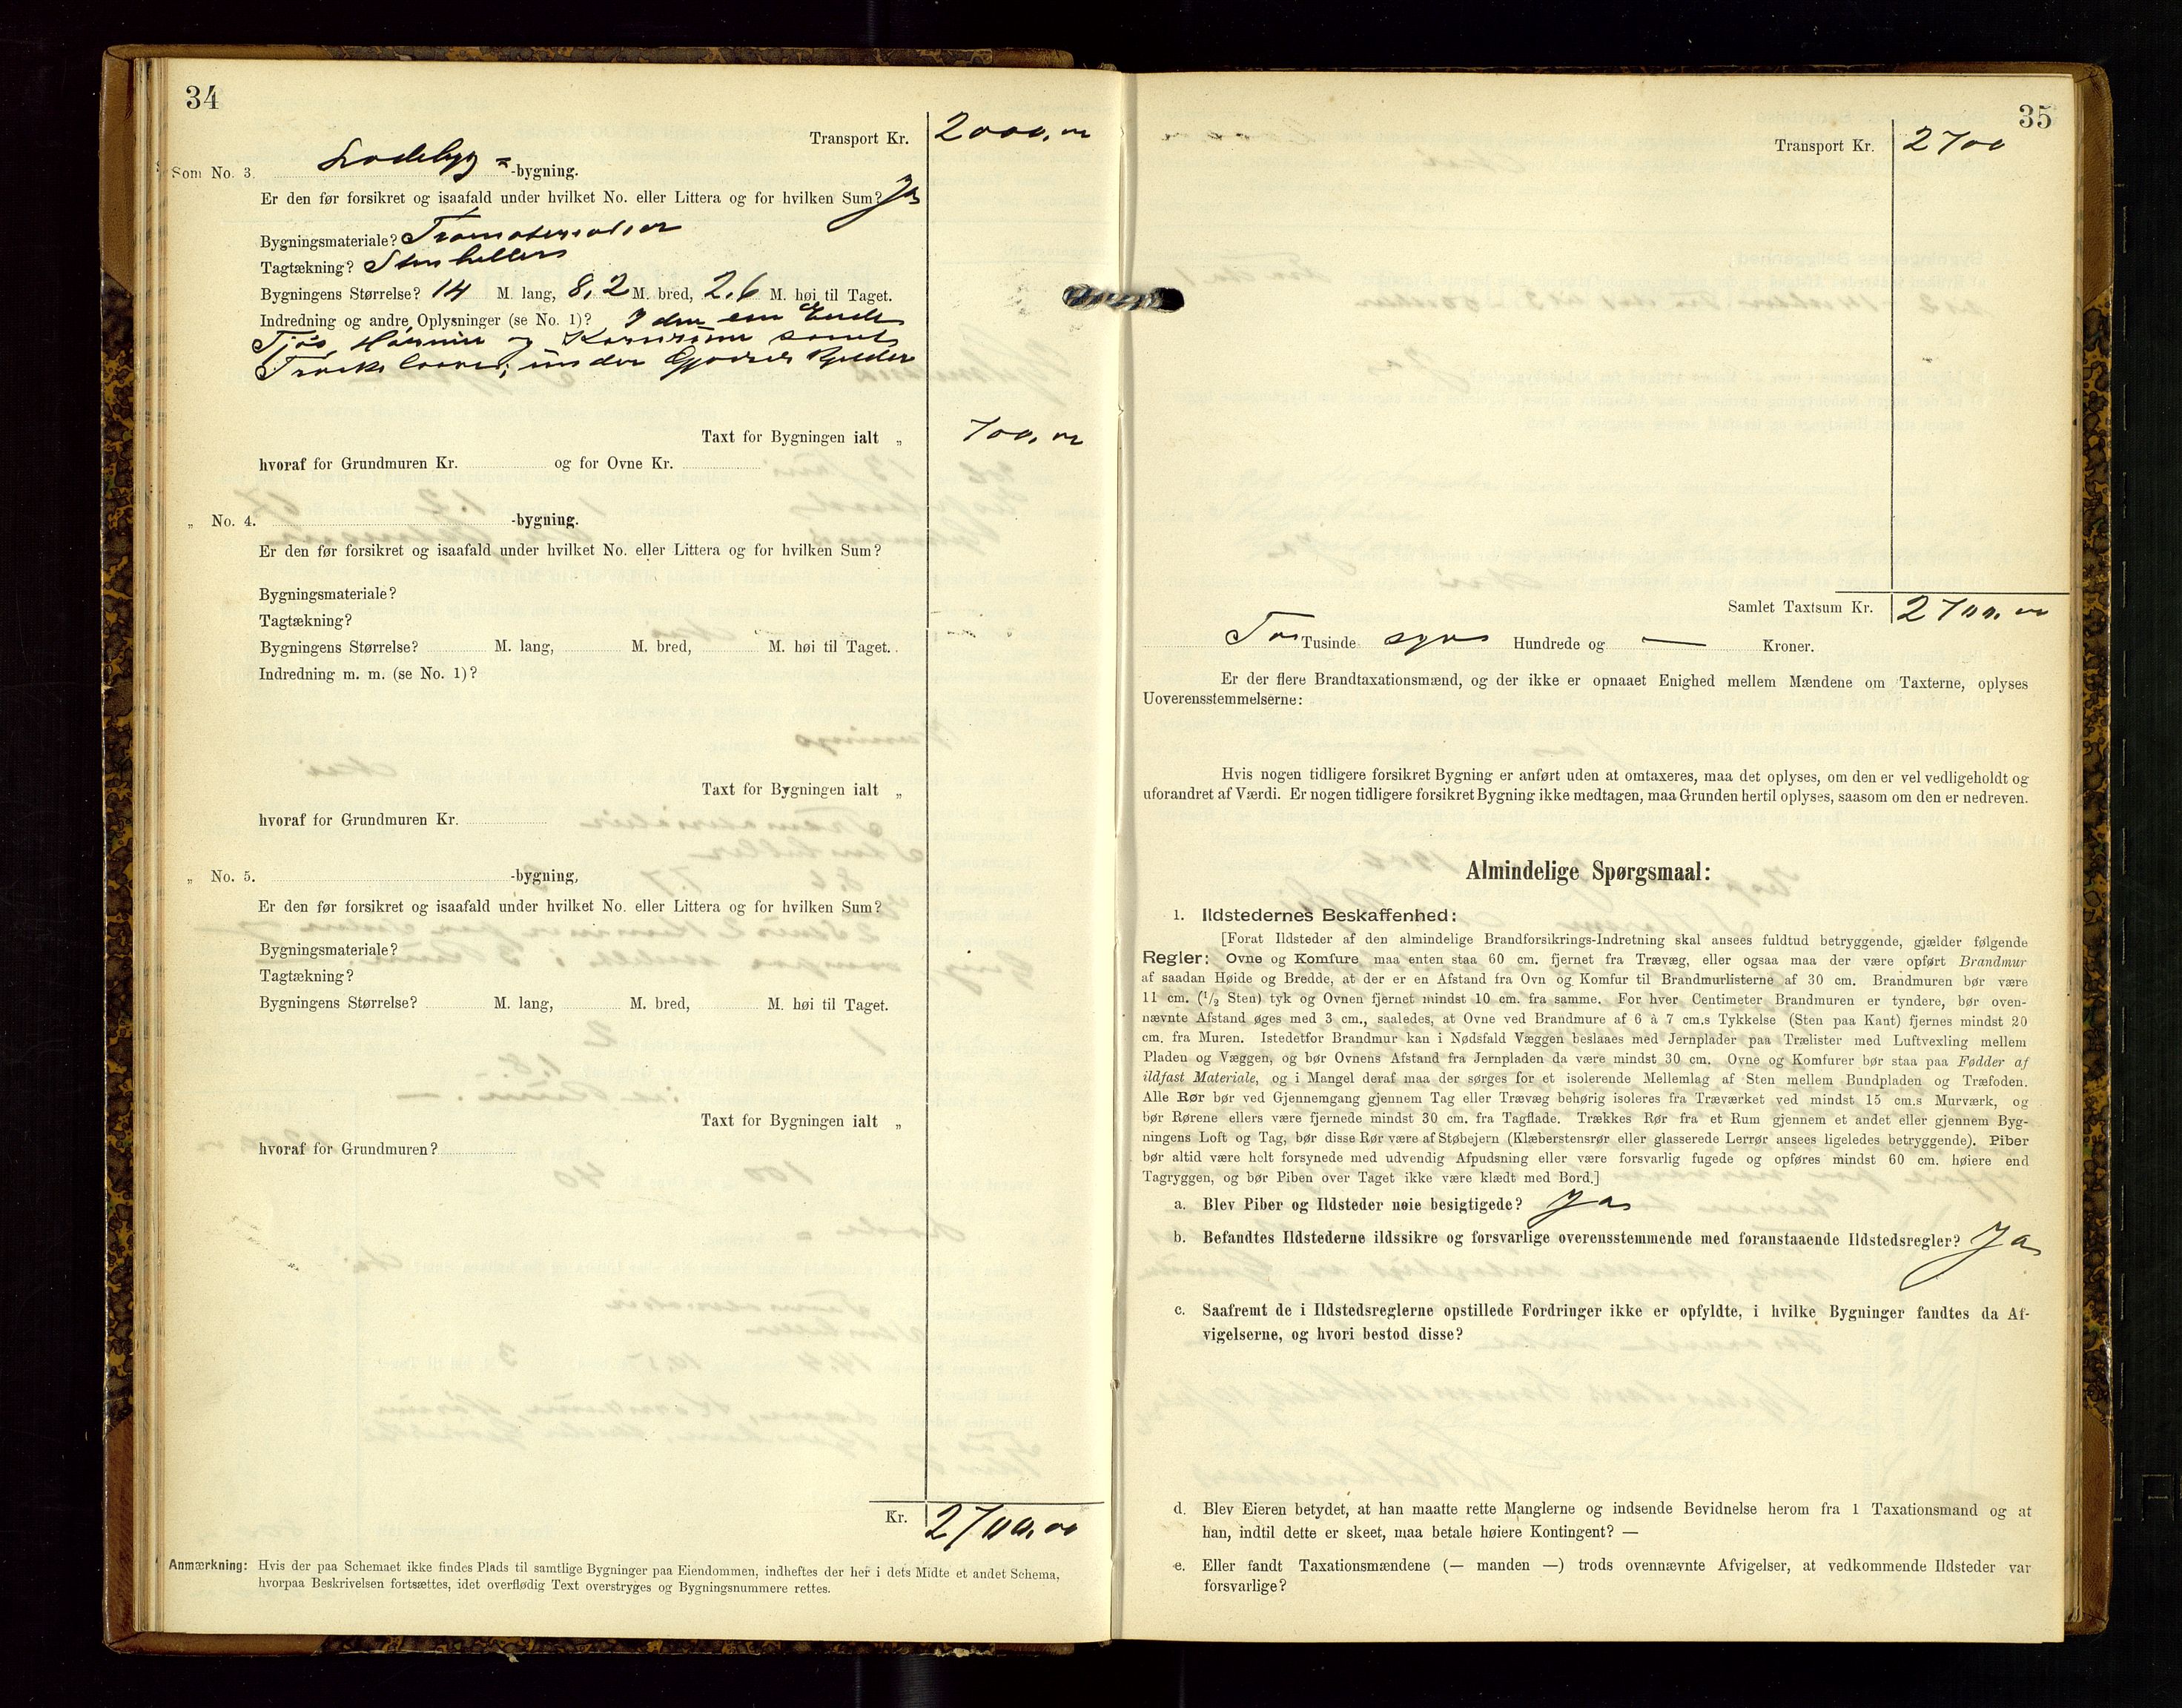 34
Transport Kr. 2000,00
Som No. 3. Ladebyg=-bygning.
Er den før forsikret og isaafald under hvilket No. eller Littera og for hvilken Sum? Ja
Bygningsmateriale? Træmaterialier
Tagtækning? Stenheller
Bygningens Størrelse? 14 M. lang, 8,2 M. bred, 2,6 M. høi til Taget.
Indredning og andre Oplysninger (se No. 1)? I den ene Ende
Fjøs, Hørum og Kornrum samt
Træskelaave, under Gjødsel
Taxt for Bygningen ialt „ 700,00
hvoraf for Grundmuren Kr. og for Ovne Kr.
„ No. 4. -bygning.
Er den før forsikret og isaafald under hvilket No. eller Littera og for hvilken Sum?
Bygningsmateriale?
Tagtækning?
Bygningens Størrelse? M. lang, M. bred, M. høi til Taget.
Indredning m. m. (se No. 1)?
Taxt for Bygningen ialt „
hvoraf for Grundmuren Kr.
„ No. 5. -bygning,
Er den før forsikret og isaafald under hvilket No. eller Littera og for hvilken Sum?
Bygningsmateriale?
Tagtækning?
Bygningens Størrelse? M. lang, M. bred, M. høi til Taget.
Taxt for Bygningen ialt „
hvoraf for Grundmuren?
Kr. 2700,00
Anmærkning: Hvis der paa Schemaet ikke findes Plads til samtlige Bygninger paa Eiendommen, indheftes der her i dets Midte et andet Schema,
hvorpaa Beskrivelsen fortsættes, idet overflødig Text overstryges og Bygningsnummere rettes.
35
Transport Kr. 2700
Samlet Taxtsum Kr. 2700,00
To Tusinde syv Hundrede og — Kroner.
Er der flere Brandtaxationsmænd, og der ikke er opnaaet Enighed mellem Mændene om Taxterne, oplyses
Uoverensstemmelserne:
Hvis nogen tidligere forsikret Bygning er anført uden at omtaxeres, maa det oplyses, om den er vel vedligeholdt og
uforandret af Værdi. Er nogen tidligere forsikret Bygning ikke medtagen, maa Grunden hertil oplyses, saasom om den er nedreven.
Almindelige Spørgsmaal:
1. Ildstedernes Beskaffenhed:
[Forat Ildsteder af den almindelige Brandforsikrings-Indretning skal ansees fuldtud betryggende, gjælder følgende
Regler: Ovne og Komfure maa enten staa 60 cm. fjernet fra Trævæg, eller ogsaa maa der være opført Brandmur
af saadan Høide og Bredde, at der er en Afstand fra Ovn og Komfur til Brandmurlisterne af 30 cm. Brandmuren bør være
11 cm. (1/2 Sten) tyk og Ovnen fjernet mindst 10 cm. fra samme. For hver Centimeter Brandmuren er tyndere, bør oven-
nævnte Afstand øges med 3 cm., saaledes, at Ovne ved Brandmure af 6 à 7 cm.s Tykkelse (Sten paa Kant) fjernes mindst 20
cm. fra Muren. Istedetfor Brandmur kan i Nødsfald Væggen beslaaes med Jernplader paa Trælister med Luftvexling mellem
Pladen og Væggen, og bør Ovnens Afstand fra Jernpladen da være mindst 30 cm. Ovne og Komfurer bør staa paa Fødder af
ildfast Materiale, og i Mangel deraf maa der sørges for et isolerende Mellemlag af Sten mellem Bundpladen og Træfoden.
Alle Rør bør ved Gjennemgang gjennem Tag eller Trævæg behørig isoleres fra Træværket ved mindst 15 cm.s Murværk, og
bør Rørene ellers være fjernede mindst 30 cm. fra Tagflade. Trækkes Rør fra et Rum gjennem et andet eller gjennem Byg-
ningens Loft og Tag, bør disse Rør være af Støbejern (Klæberstensrør eller glasserede Lerrør ansees ligeledes betryggende). Piber
bør altid være helt forsynede med udvendig Afpudsning eller være forsvarlig fugede og opføres mindst 60 cm. høiere end
Tagryggen, og bør Piben over Taget ikke være klædt med Bord.]
a. Blev Piber og Ildsteder nøie besigtigede? Ja
b. Befandtes Ildstederne ildssikre og forsvarlige overensstemmende med foranstaaende Ildstedsregler? Ja
c. Saafremt de i Ildstedsreglerne opstillede Fordringer ikke er opfyldte, i hvilke Bygninger fandtes da Af-
vigelserne, og hvori bestod disse?
d. Blev Eieren betydet, at han maatte rette Manglerne og indsende Bevidnelse herom fra 1 Taxationsmand og at
han, indtil dette er skeet, maa betale høiere Kontingent? —
e. Eller fandt Taxationsmændene (— manden —) trods ovennævnte Afvigelser, at vedkommende Ildsteder var
forsvarlige?